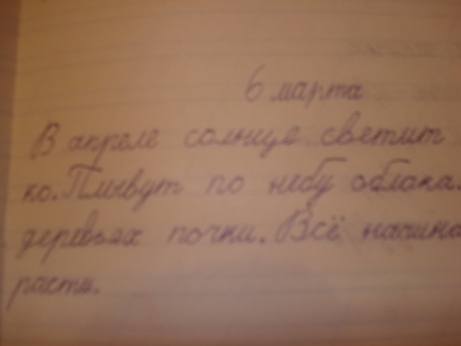 6 марта
В апреле солнце светит
ко. Плывут по небу облака.
деревьях почки. Всё начина
расти.